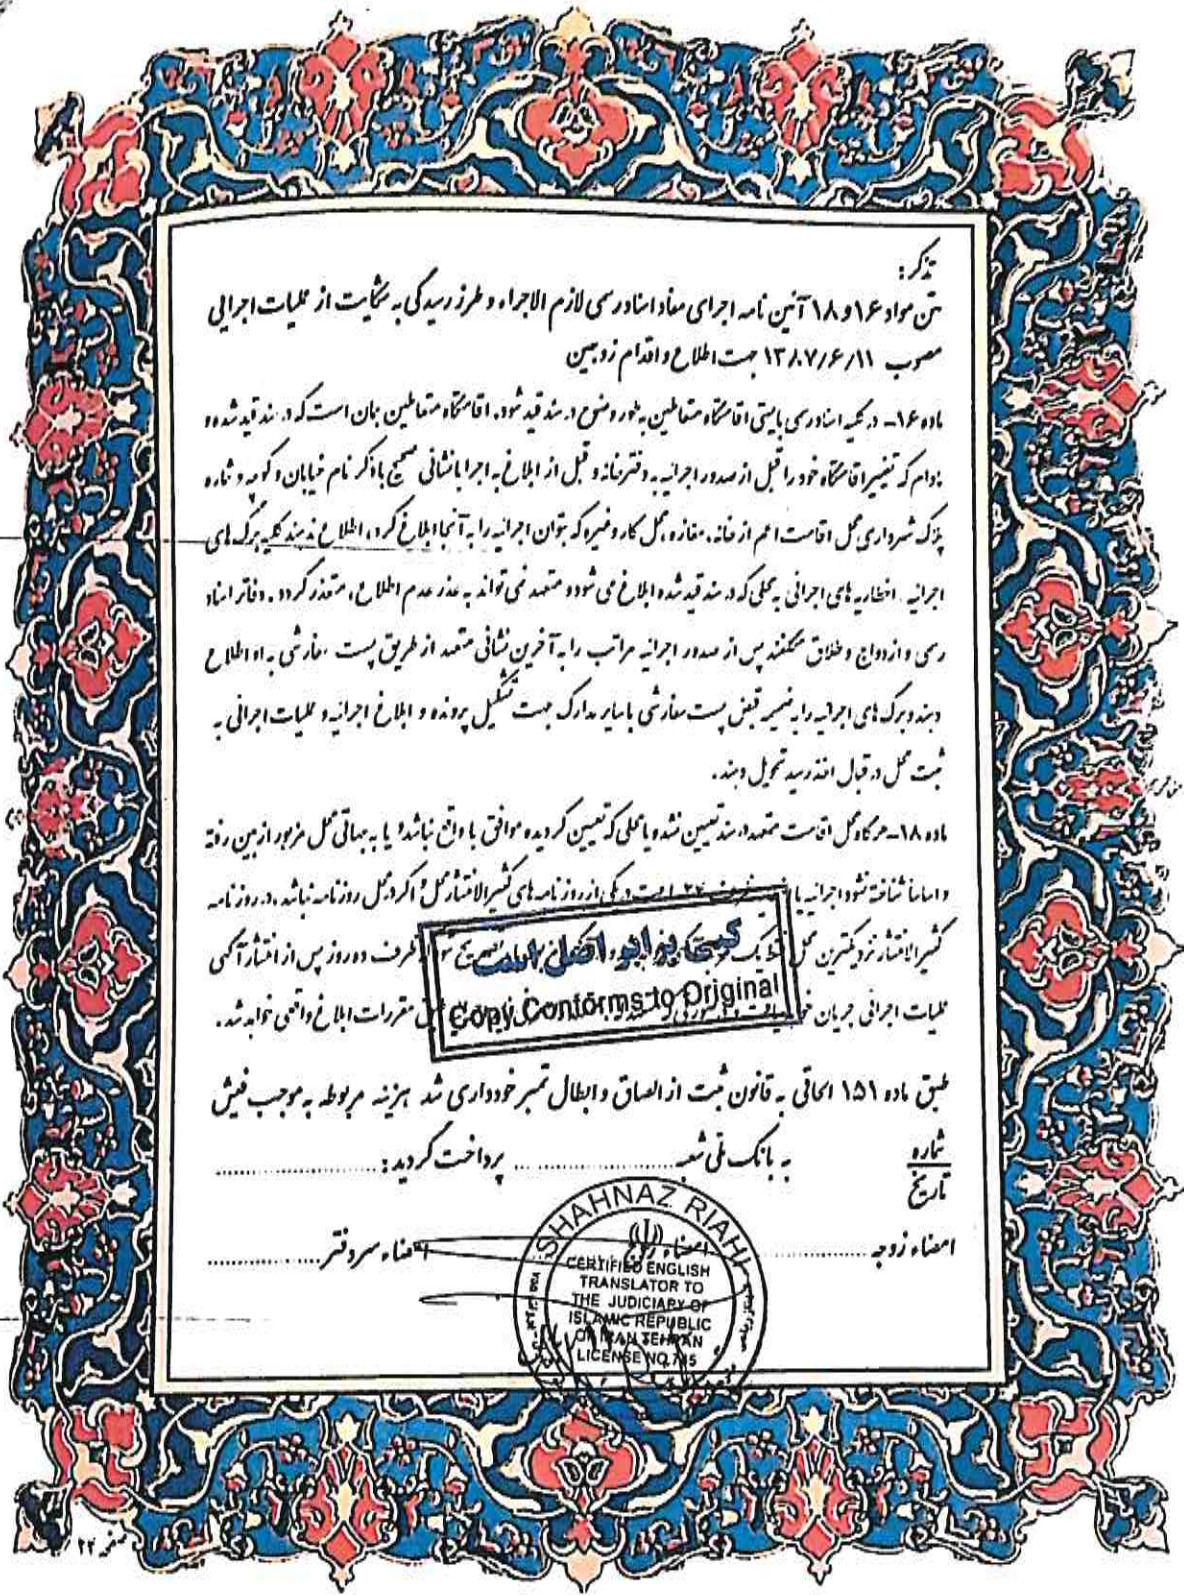 تذکر:
متن مواد ۱۶ و ۱۸ آئین نامه اجرای مفاد اسناد رسمی لازم الاجراء و طرز رسیدگی به شکایت از عملیات اجرایی
مصوب ۱۳۸۷/۶/۱۱ جهت اطلاع و اقدام زوجین
ماده ۱۶- در کلیه اسناد رسمی بایستی اقامتگاه متعاملین به طور وضوح در سند قید شود. اقامتگاه متعاملین همان است که در سند قید شده و
مادام که تغییر اقامتگاه خود را قبل از صدور اجرائیه به دفترخانه و قبل از ابلاغ به اجرا با نشانی صحیح با ذکر نام خیابان و کوچه و شماره
پلاک شهرداری محل اقامت اعم از خانه، مغازه، محل کار و غیره که بتوان اجرائیه را به آنجا ابلاغ کرد، اطلاع ندهند کلیه برگ های
اجرائیه، اخطاریه های اجرائی به محلی که در سند قید شده ابلاغ می شود و متعهد نمی تواند به عذر عدم اطلاع، متعذر گردد. دفاتر اسناد
رسمی و ازدواج و طلاق مکلفند پس از صدور اجرائیه مراتب را به آخرین نشانی متعهد از طریق پست سفارشی به او اطلاع
دهند و برگ های اجرائیه را به ضمیمه قبض پست سفارشی با سایر مدارک جهت تشکیل پرونده و ابلاغ اجرائیه و عملیات اجرائی به
ثبت محل در قبال اخذ رسید تحویل دهند.
ماده ۱۸- هرگاه محل اقامت متعهد در سند تعیین نشده یا محلی که تعیین گردیده موافق با واقع نباشد و یا به جهاتی محل مزبور از بین رفته
و اساسا شناخته نشود اجرائیه در یکی از روزنامه های کثیرالانتشار محل و اگر در محل روزنامه نباشد، در روزنامه
کثیرالانتشار نزدیکترین محل یک ظرف ده روز پس از انتشار آگهی
عملیات اجرائی جریان مقررات ابلاغ واقعی خواهد شد.
کپی برابر اصل است
Copy Conforms to Original
طبق ماده ۱۵۱ الحاقی به قانون ثبت از الصاق و ابطال تمبر خودداری شد هزینه مربوطه به موجب فیش
شماره
تاریخ
به بانک ملی شعبه ............ پرداخت گردید: ............
امضاء زوجه ............ امضاء زوج ............ امضاء سردفتر ............
SHAHNAZ RIAHI
CERTIFIED ENGLISH
TRANSLATOR TO
THE JUDICIARY OF
ISLAMIC REPUBLIC
OF IRAN TEHRAN
LICENSE NO.745
صفحه ۲۲